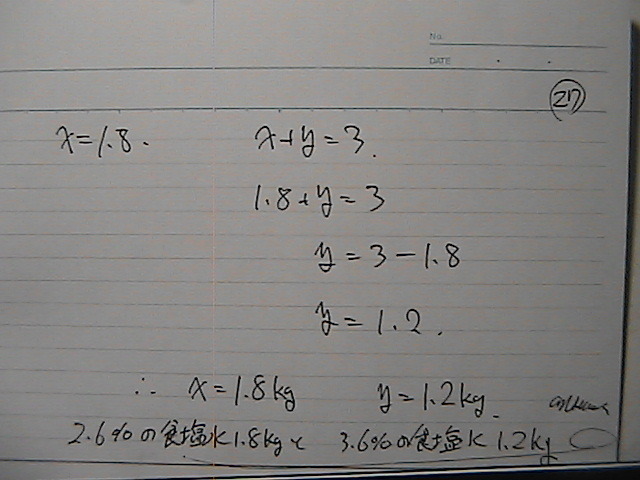 No.
DATE
217
x=1.8. x+y=3.
1.8+y=3
y=3-1.8
y=1.2.
∴ x=1.8kg y=1.2kg.
2.6%の食塩水1.8kgと 3.6%の食塩水1.2kg